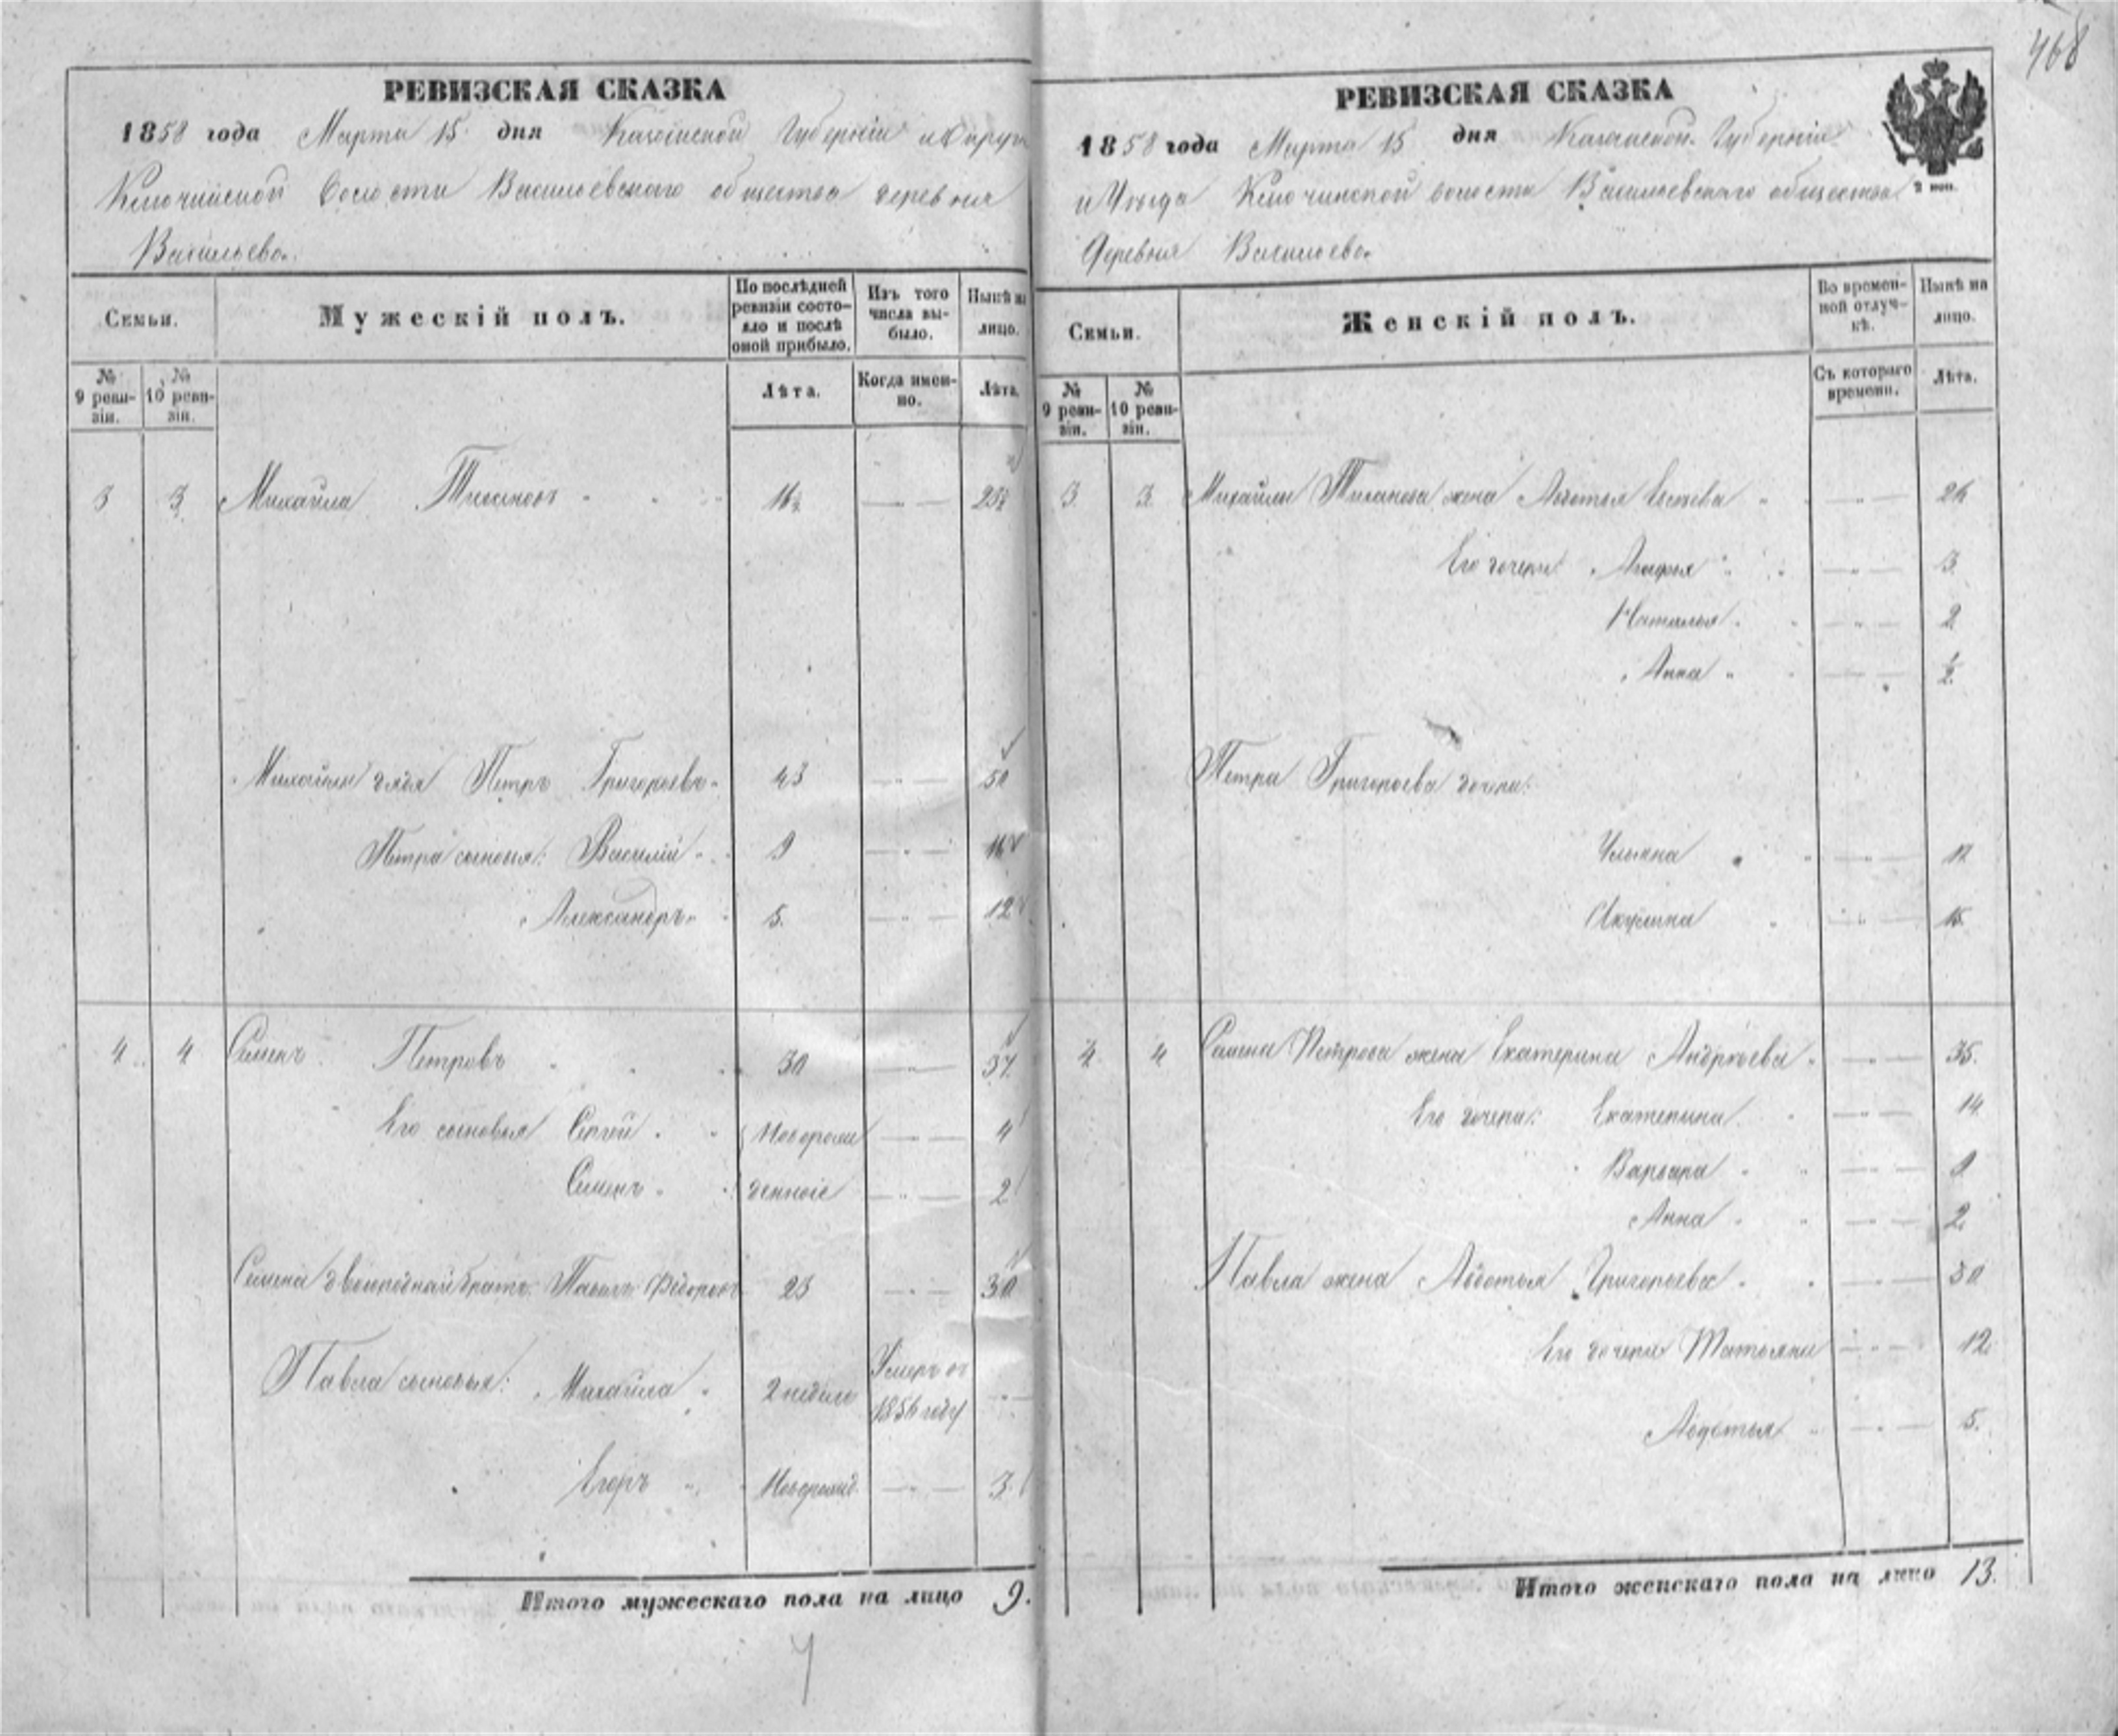 468
РЕВИЗСКАЯ СКАЗКА
1858 года Марта 15 дня Казанской Губернiи и Округа
Ключинской волости Васильевского общества деревня
Васильева.
Семьи.
Мужескiй полъ.
По послѣдней ревизiи состояло и послѣ оной прибыло.
Изъ того числа выбыло.
Нынѣ на лицо.
№ 9 ревизiи.
№ 10 ревизiи.
Лѣта.
Когда именно.
Лѣта.
3 3 Михайла 16½ — " — 23½
Михайлы дядя Петръ Григорьевъ 43 — " — 50
Петра сыновья: Василiй 9 — " — 16
Александръ 5. — " — 12
4 4 Семенъ Петровъ 30 — " — 37.
Его сыновья Сергѣй Новорож — " — 4
Семенъ денные — " — 2
Семена двоюродный братъ Павелъ Федоровъ 23 — " — 30
Павла сыновья: Михайла 2 недели Умеръ въ 1856 году — " —
Егоръ Новорожд — " — 3
Итого мужескаго пола на лицо 9.
РЕВИЗСКАЯ СКАЗКА
1858 года Марта 15 дня Казанской Губернiи
и Уѣзда Ключинской волости Васильевского общества
Деревня Васильева.
2 коп.
Семьи.
Женскiй полъ.
Во временной отлучкѣ.
Нынѣ на лицо.
№ 9 ревизiи.
№ 10 ревизiи.
Съ котораго времени.
Лѣта.
3 3 Михайлы жена Авдотья — " — 26
Его дочери Агафья — " — 3
Наталья — " — 2
Анна — " — ½
Петра Григорьева дочери:
Ульяна — " — 17
Акулина — " — 15
4 4 Семена Петрова жена Екатерина Андреева — " — 35.
Его дочери: Екатерина — " — 14
Варвара — " — 9
Анна — " — 2
Павла жена Авдотья Григорьева — " — 30
Его дочери Татьяна — " — 12
Авдотья — " — 5.
Итого женскаго пола на лицо 13.